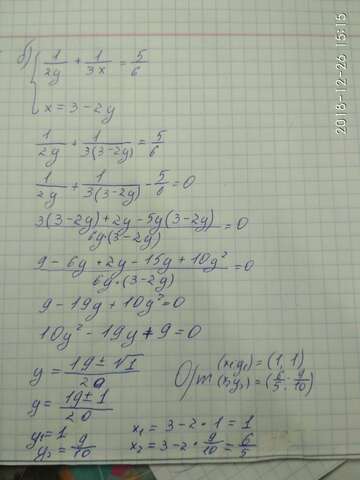 б) { 1/2y + 1/3x = 5/6
x = 3 - 2y
1/2y + 1/3(3-2y) = 5/6
1/2y + 1/3(3-2y) - 5/6 = 0
3(3-2y)+2y-5y(3-2y)/6y·(3-2y) = 0
9-6y+2y-15y+10y²/6y·(3-2y) = 0
9-19y+10y²=0
10y²-19y+9=0
y = 19±√1/20
y = 19±1/20
y₁=1
y₂=9/10
x₁ = 3-2·1=1
x₂ = 3-2·9/10=6/5
От (x₁y₁) = (1, 1)
(x₂y₂) = (6/5; 9/10)
2018-12-26 15:15